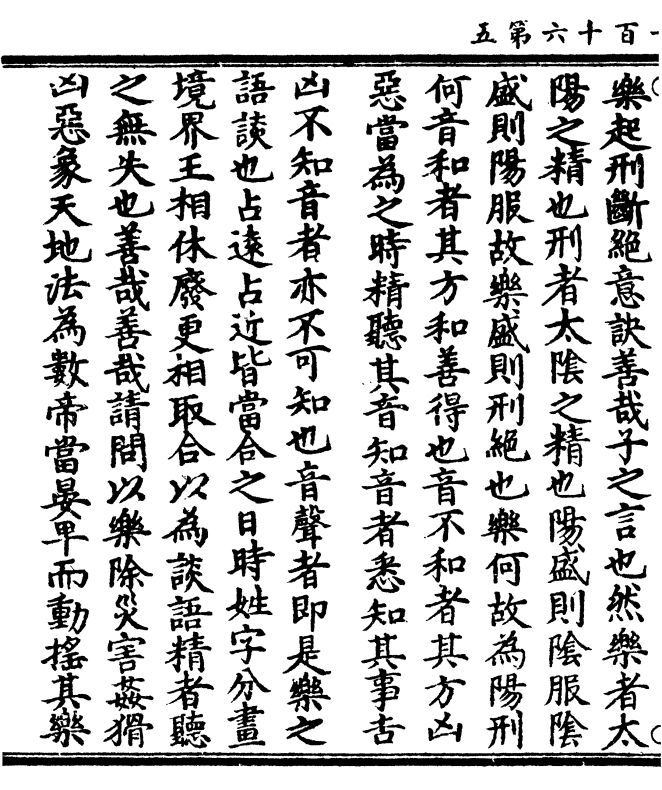 一百十六第五
樂起刑斷絕意訣善哉子之言也然樂者太
陽之精也刑者太陰之精也陽盛則陰服陰
盛則陽服故樂盛則刑絕也樂何故為陽刑
何音和者其方和善得也音不和者其方凶
惡當為之時精聽其音知音者悉知其事吉
凶不知音者亦不可知也音聲者即是樂之
語談也占遠占近皆當合之日時姓字分畫
境界王相休廢更相取合以為談語精者聽
之無失也善哉善哉請問以樂除災害姦猾
凶惡象天地法為數帝當晏早而動搖其樂